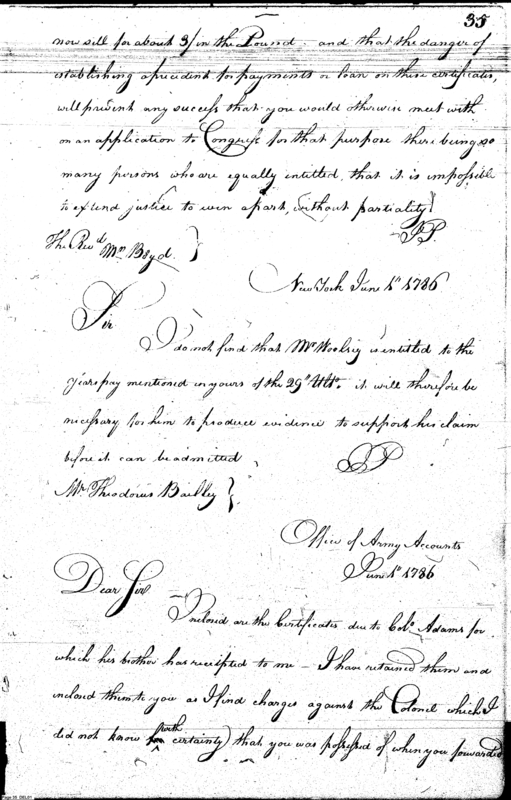 35
now sell for about 3/ in the Pound. and that the danger of
establishing a precedent for payments or loan on these certificates,
will prevent any success that you would otherwise meet with
on an application to Congress for that purpose there being so
many persons who are equally entitled, that it is impossible
to extend justice to even a part, without partiality
JP.
The Revd. Mr. Boyd. }
New York June 1st 1786
Sir
I do not find that Mr. Woolsey is entitled to the
years pay mentioned in yours of the 29th Ulto. it will therefore be
necessary for him to produce evidence to support his claim
before it can be admitted
JP
Mr. Theodorus Bailley }
Office of Army Accounts
June 1st 1786
Dear Sir
Inclosed are the Certificates due to Colo. Adams for
which his brother has receipted to me – I have retained them and
inclosed them to you as I find charges against the Colonel which I
did not know with certainty) that you was possessed of when you forwarded
Page 35